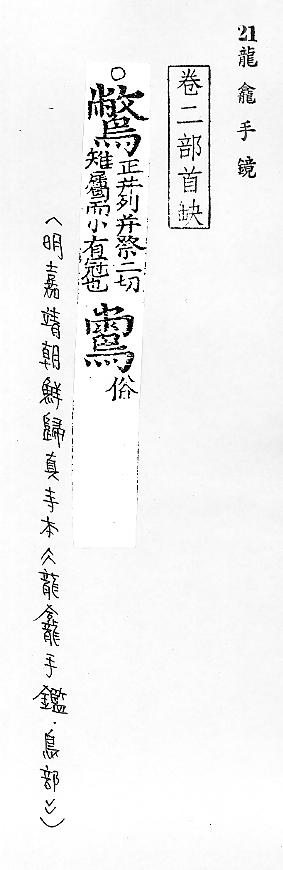 21 龍龕手鏡
卷二部首缺
○鷩
正并列并祭二切
雉屬而小有冠也
俗
（明嘉靖朝鮮歸真寺本《龍龕手鑑·鳥部》）